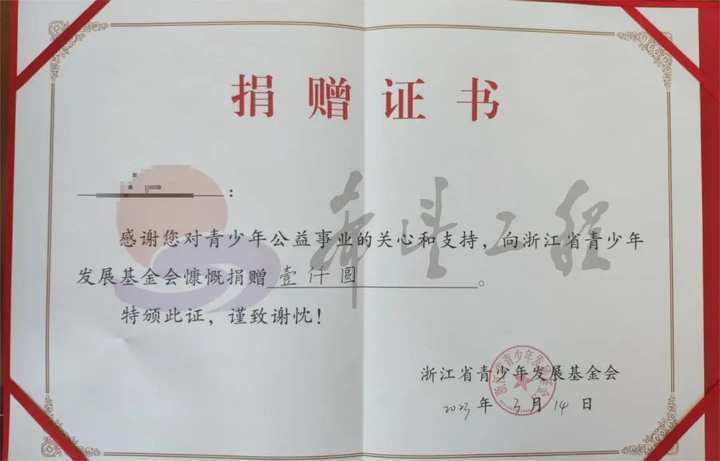 捐赠证书
:
希望工程
感谢您对青少年公益事业的关心和支持，向浙江省青少年
发展基金会慷慨捐赠壹仟圆。
特颁此证，谨致谢忱！
浙江省青少年发展基金会
浙江省青少年发展基金会
2023年3月14日